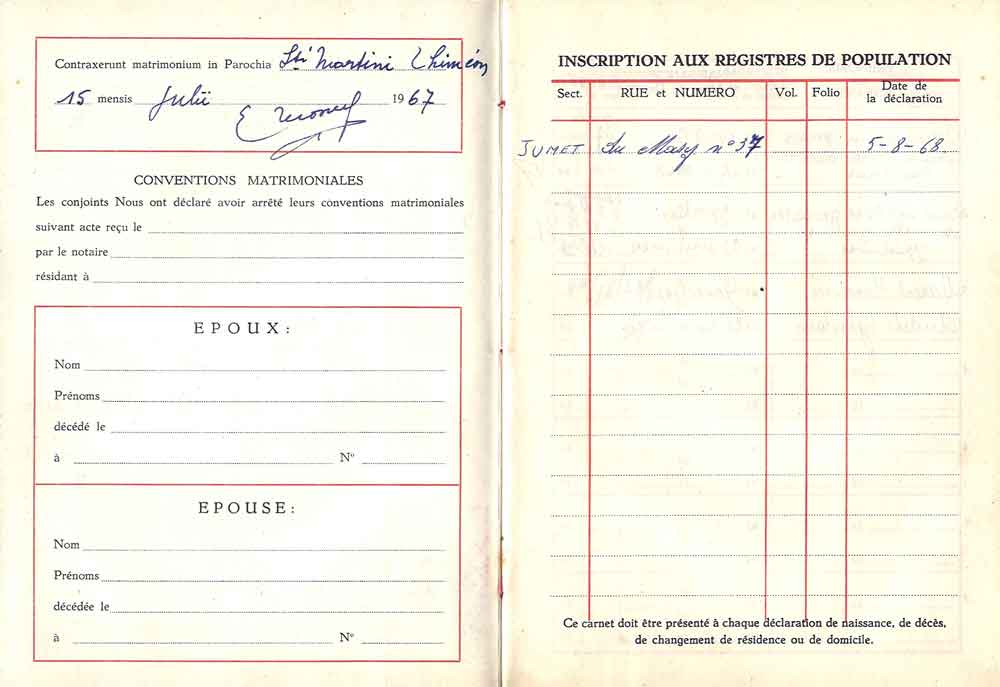 Contraxerunt matrimonium in Parochia Sti Martini Thiméon
15 mensis Julii 1967
CONVENTIONS MATRIMONIALES
Les conjoints Nous ont déclaré avoir arrêté leurs conventions matrimoniales
suivant acte reçu le
par le notaire
résidant à
EPOUX:
Nom
Prénoms
décédé le
à N°
EPOUSE:
Nom
Prénoms
décédée le
à N°
INSCRIPTION AUX REGISTRES DE POPULATION
Sect. RUE et NUMERO Vol. Folio Date de la déclaration
JUMET n° 37 5-8-68
Ce carnet doit être présenté à chaque déclaration de naissance, de décès,
de changement de résidence ou de domicile.